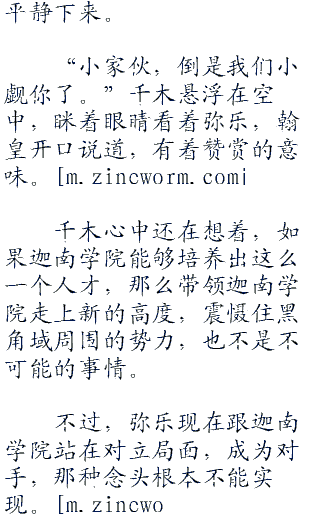 平静下来。
“小家伙，倒是我们小
觑你了。”千木悬浮在空
中，眯着眼睛看着弥乐，翰
皇开口说道，有着赞赏的意
味。[m.zincworm.com]
千木心中还在想着，如
果迦南学院能够培养出这么
一个人才，那么带领迦南学
院走上新的高度，震慑住黑
角域周围的势力，也不是不
可能的事情。
不过，弥乐现在跟迦南
学院站在对立局面，成为对
手，那种念头根本不能实
现。[m.zincwo